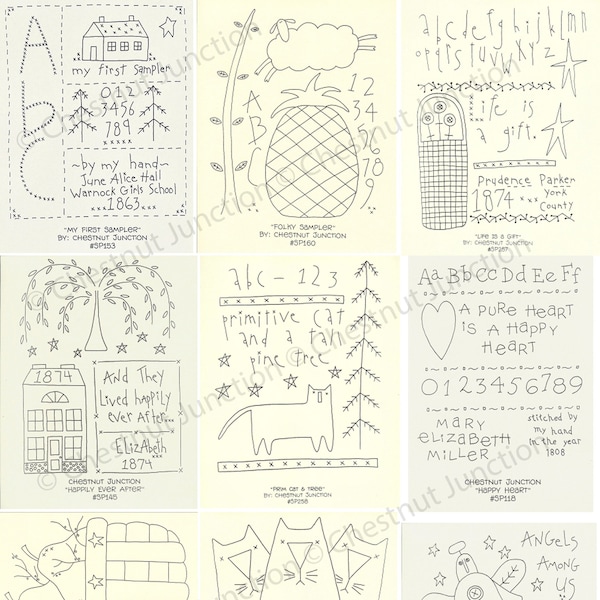 Abc
my first sampler
012
3456
789
xxxxx
~by my hand~
June Alice Hall
Warnock Girls School
1863
"MY FIRST SAMPLER"
BY: CHESTNUT JUNCTION
#SP153
A
B
C
12
34
5
6
7
8
9
"FOLKY SAMPLER"
BY: CHESTNUT JUNCTION
#SP160
abcdefghijklmn
opqrstuvwxyz
Life is
a gift.
Prudence Parker
1874 xxx York
County
"LIFE IS A GIFT"
BY: CHESTNUT JUNCTION
#SP287
1874
And They
Lived happily
ever After...
ELizAbeth
1874
CHESTNUT JUNCTION
"HAPPILY EVER AFTER"
#SP145
abc - 123
primitive cat
and a tall
pine tree
"PRIM CAT & TREE"
BY: CHESTNUT JUNCTION
#SP258
Aa Bb Cc Dd Ee Ff
A PURE HEART
IS A HAPPY
HEART
0123456789
MARY
ELIZABETH
MILLER
stitched by
my hand
in the year
1808
CHESTNUT JUNCTION
"HAPPY HEART"
#SP118
ANGELS
AMONG
US
© Chestnut Junction